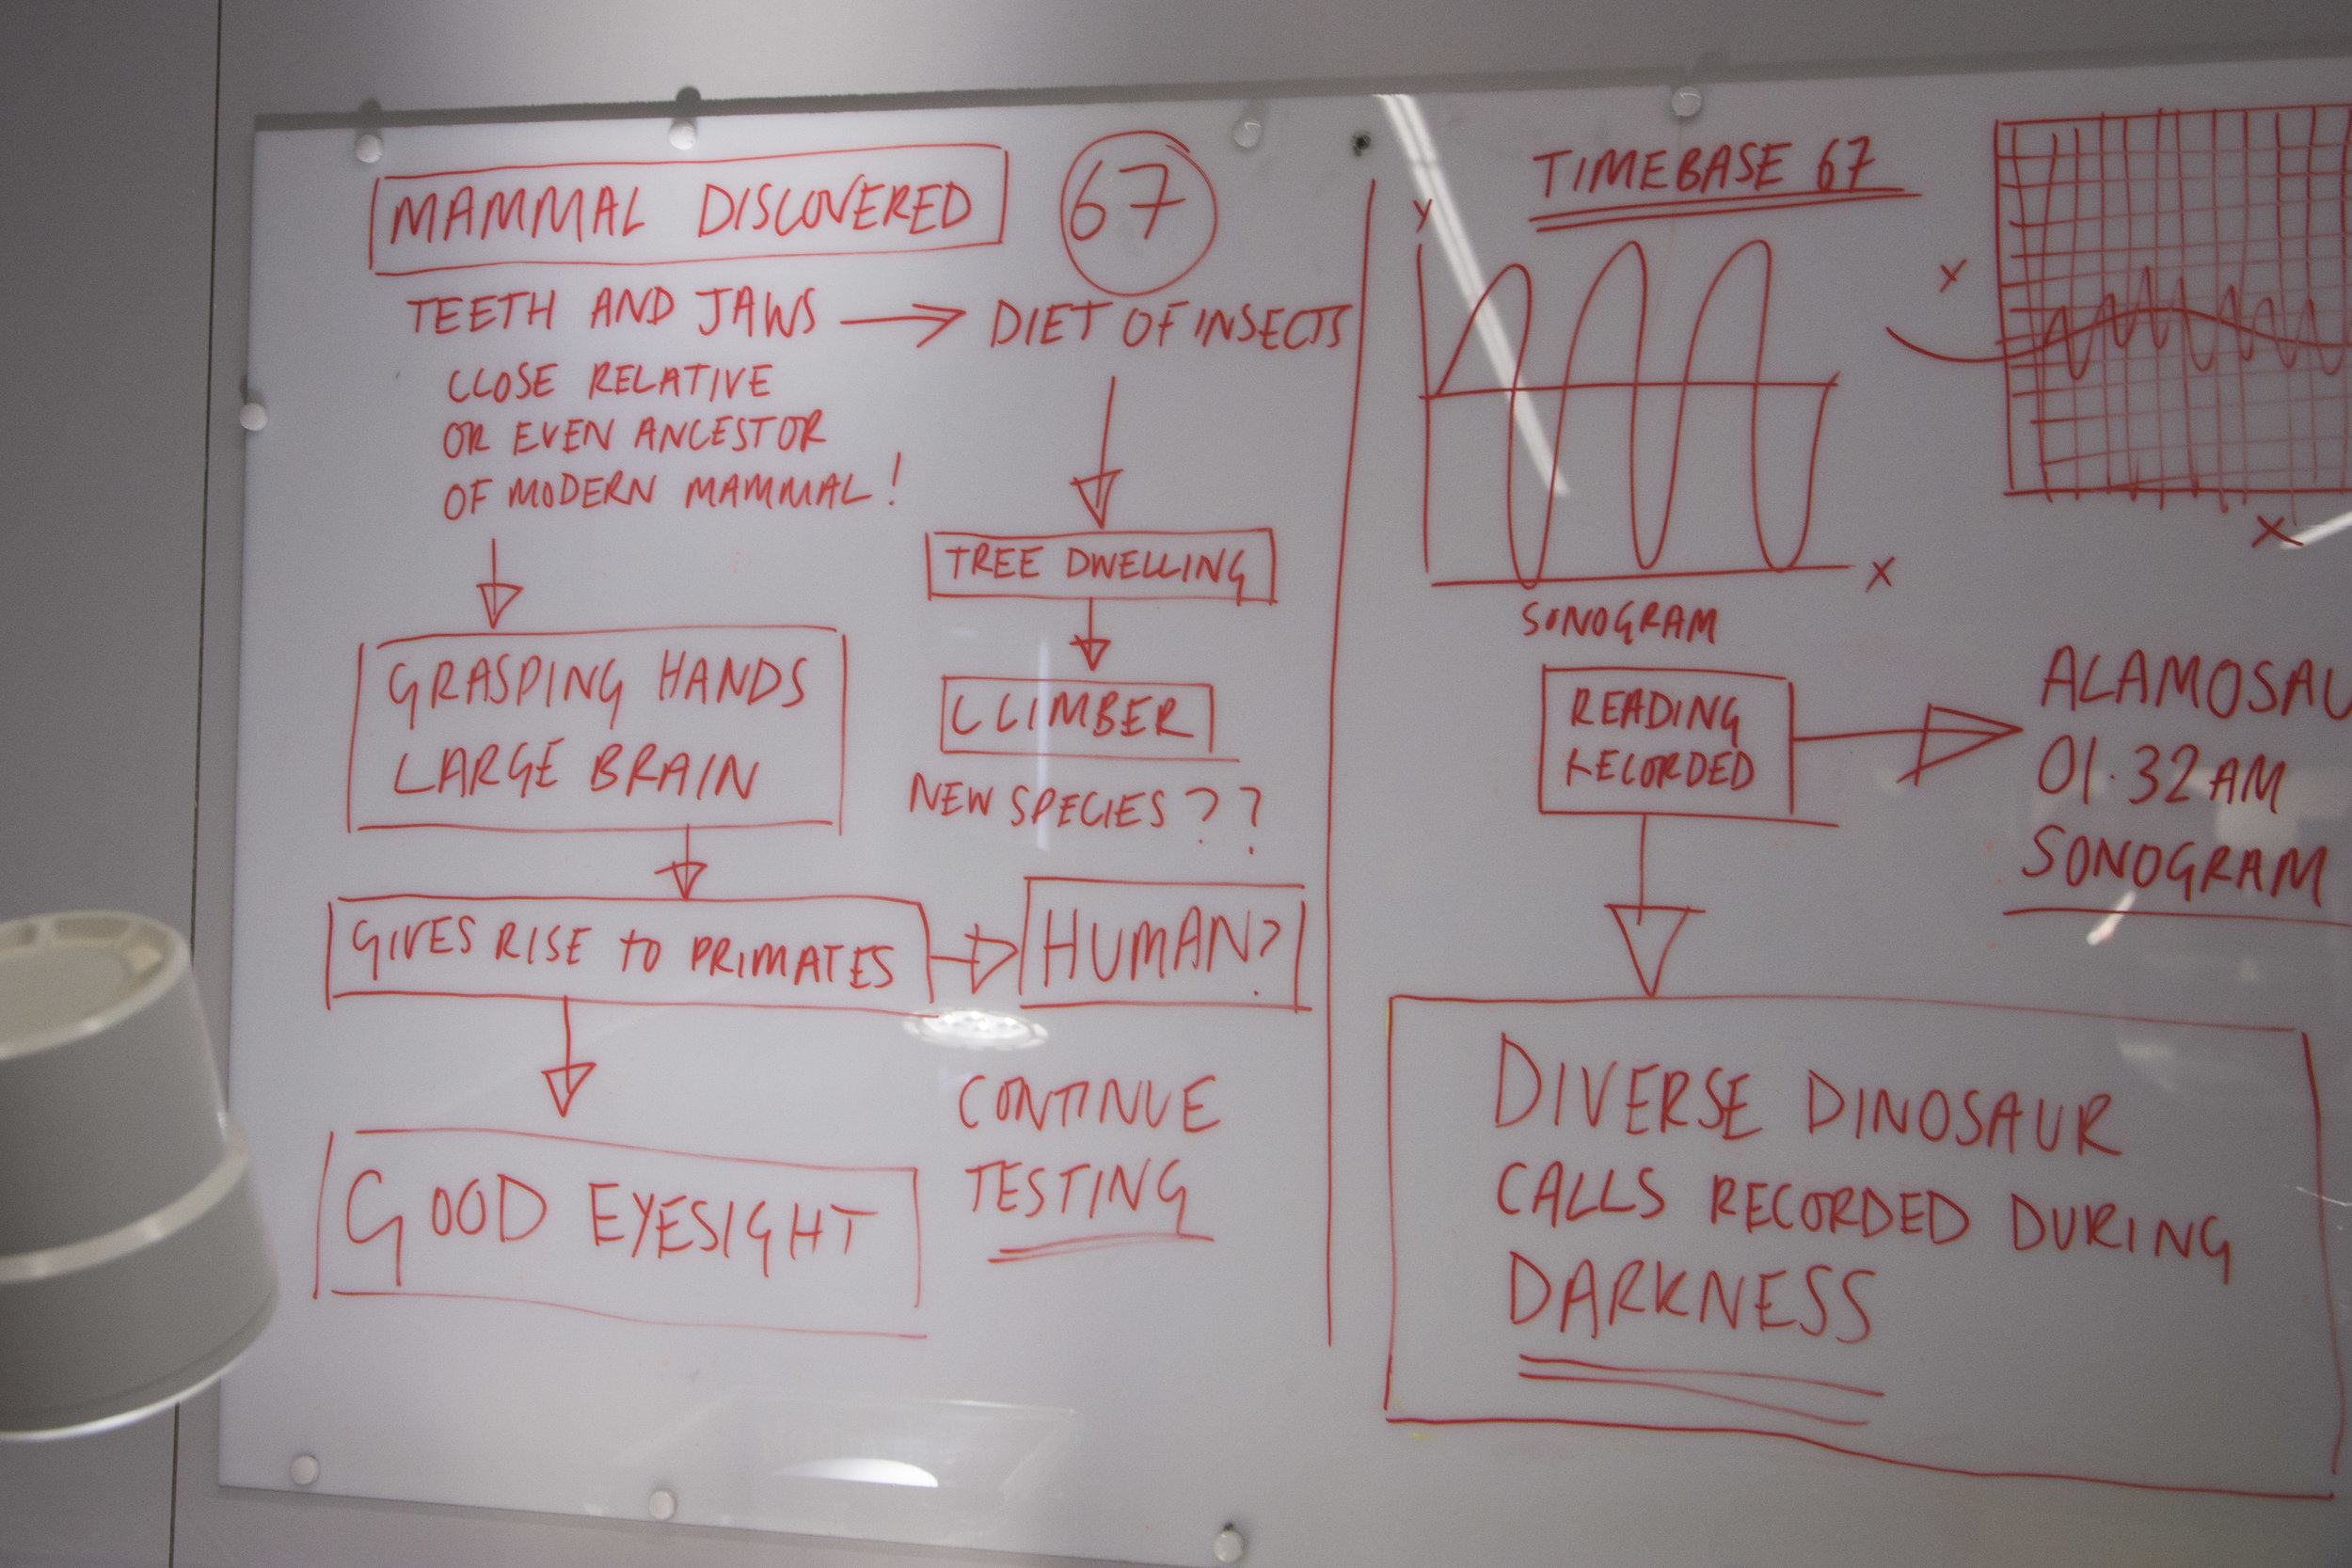 MAMMAL DISCOVERED
67
TEETH AND JAWS
DIET OF INSECTS
CLOSE RELATIVE
OR EVEN ANCESTOR
OF MODERN MAMMAL!
TREE DWELLING
CLIMBER
NEW SPECIES??
GRASPING HANDS
LARGE BRAIN
GIVES RISE TO PRIMATES
HUMAN?
GOOD EYESIGHT
CONTINUE
TESTING
TIMEBASE 67
Y
X
SONOGRAM
X
X
READING
RECORDED
ALAMOSAU
01.32AM
SONOGRAM
DIVERSE DINOSAUR
CALLS RECORDED DURING
DARKNESS